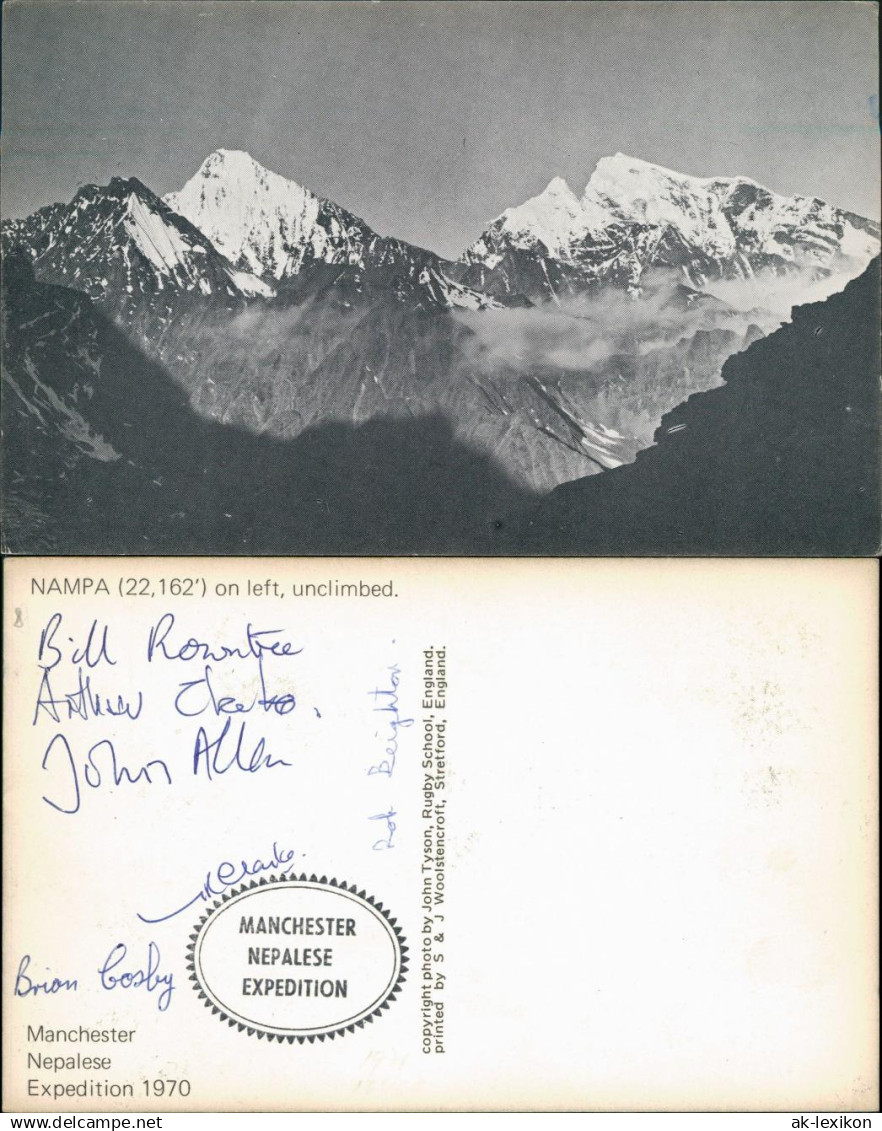 NAMPA (22,162') on left, unclimbed.
Bill Rowntree
John Allen
Rob Beighton.
Clarke.
Brian Cosby
MANCHESTER
NEPALESE
EXPEDITION
Manchester
Nepalese
Expedition 1970
copyright photo by John Tyson, Rugby School, England.
printed by S & J Woolstencroft, Stretford, England.
ak-lexikon